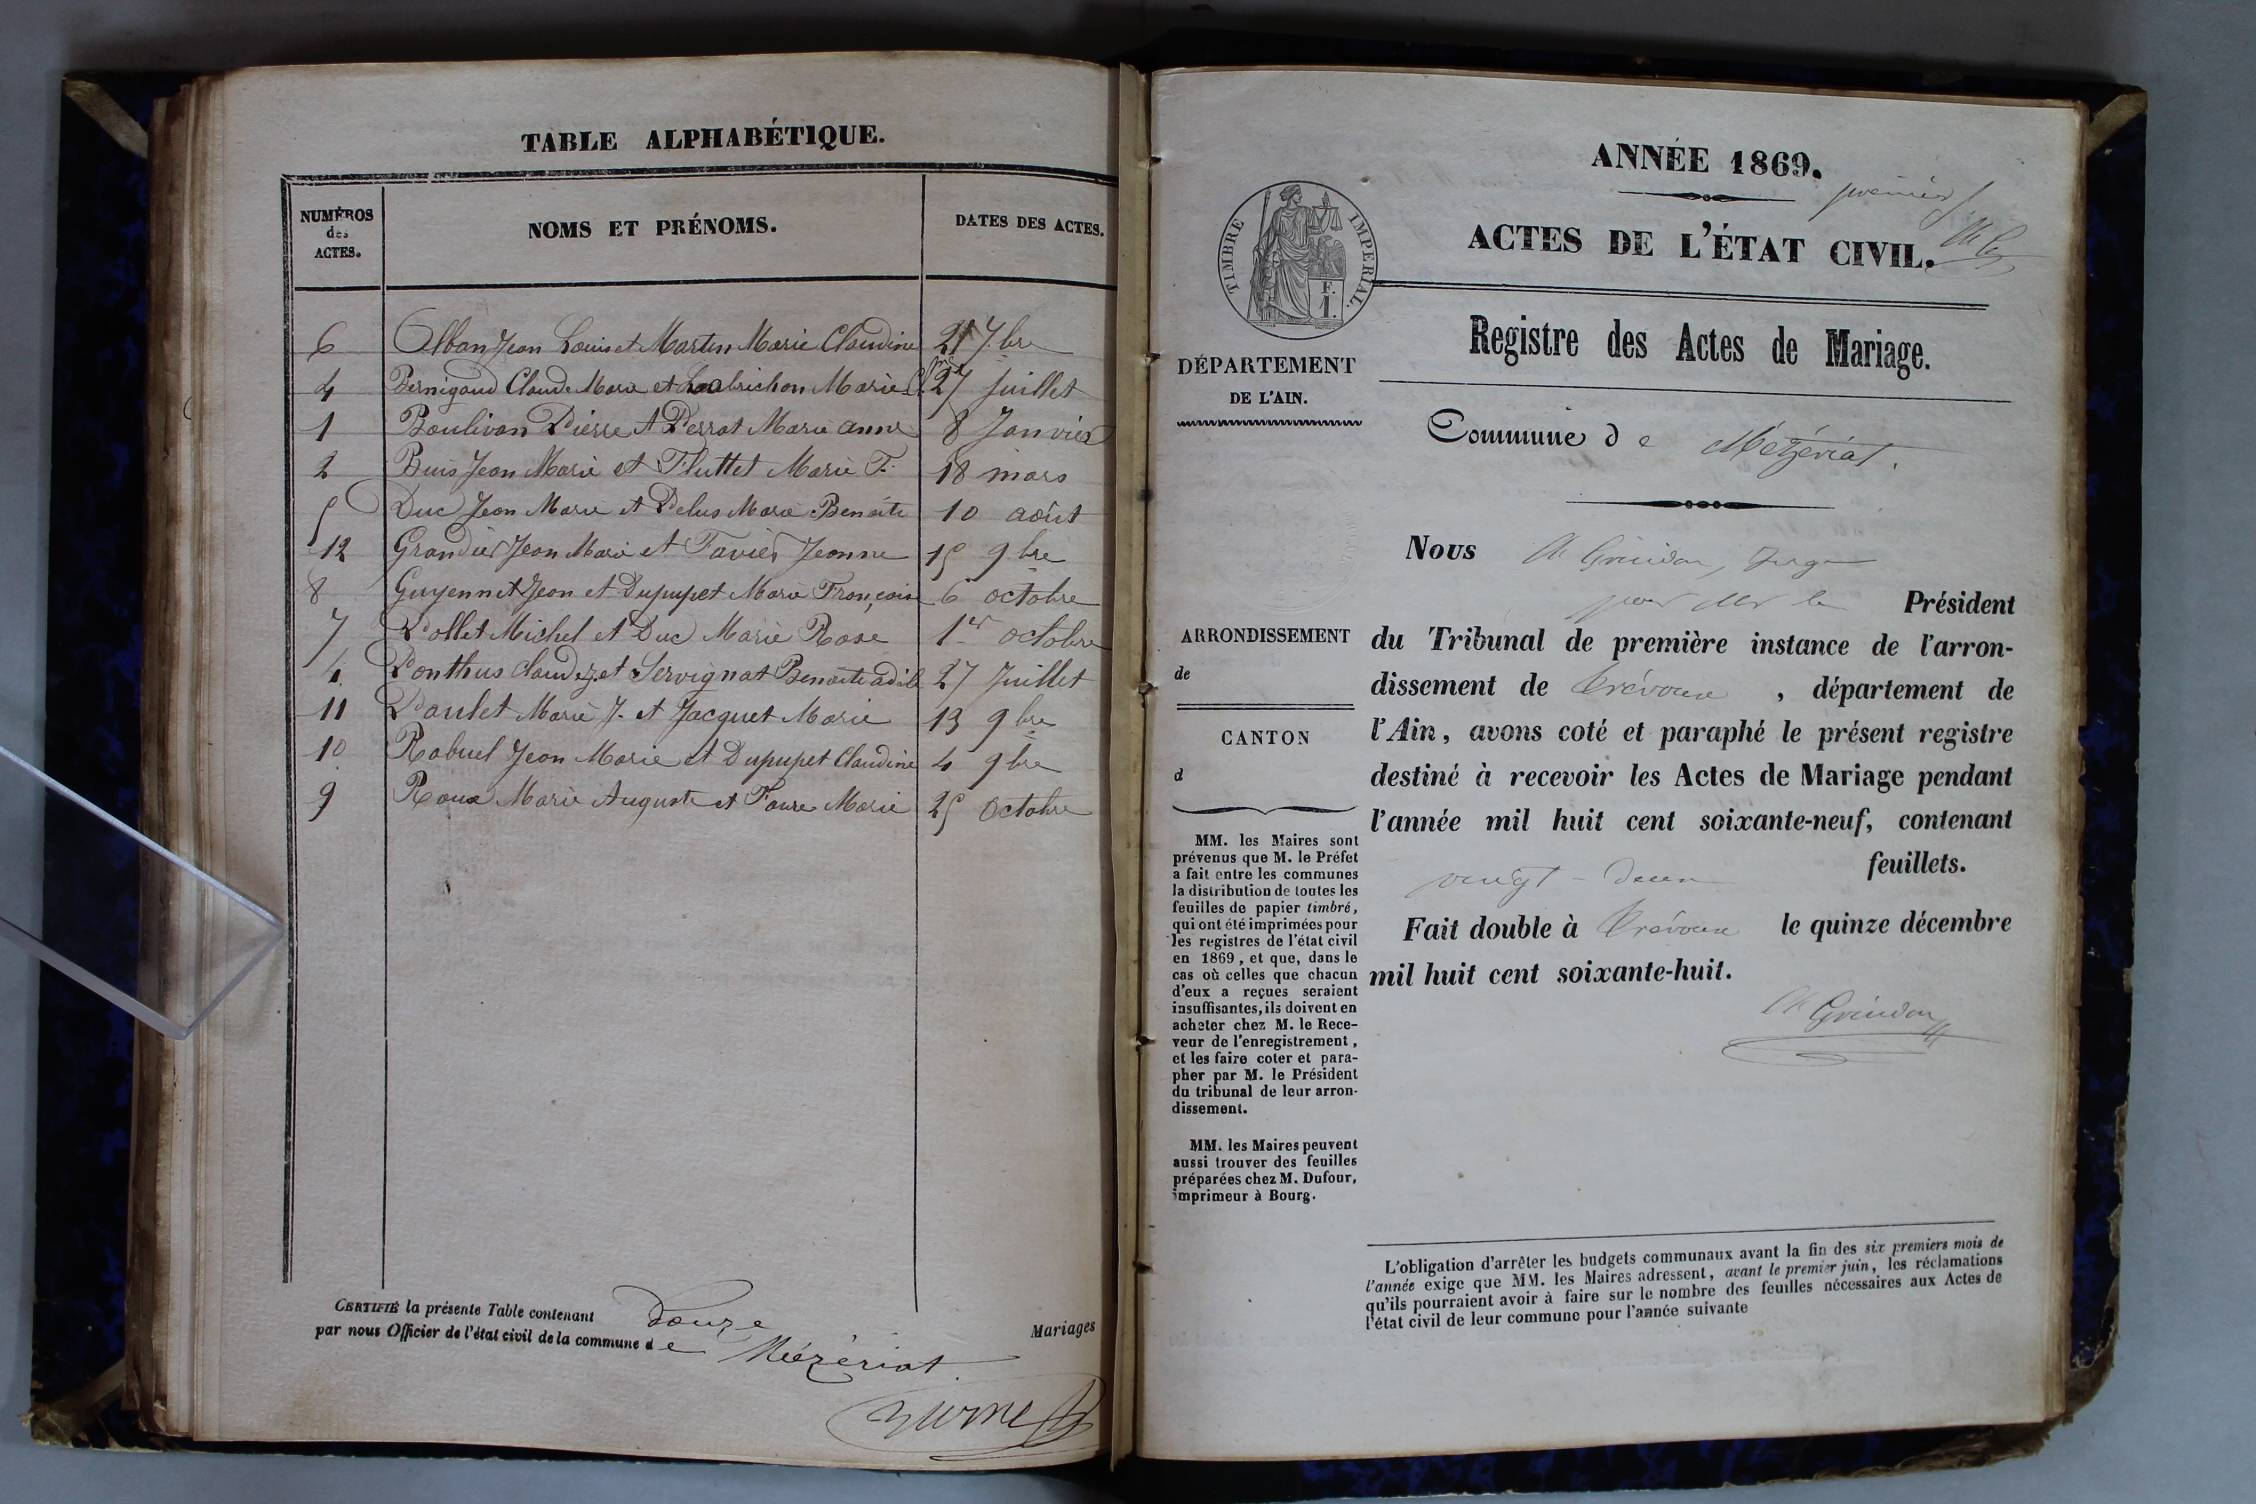 TABLE ALPHABÉTIQUE.
NUMÉROS des ACTES.
NOMS ET PRÉNOMS.
DATES DES ACTES.
6 Alban Jean Louis et Martin Marie Claudine 21 7bre
4 Bernigaud Claude Marie et Labrichon Marie Cme 27 juillet
1 Boulivan Pierre et Perrat Marie anne 8 Janvier
2 Buis Jean Marie et Fluttet Marie F. 18 mars
5 Duc Jean Marie et Pelus Marie Benoite 10 août
12 Grandier Jean Marie et Favier Jeanne 15 9bre
8 Guyennet Jean et Dupupet Marie Françoise 6 octobre
7 Pollet Michel et Duc Marie Rose 1er octobre
4 Ponthus Claude J. et Servignat Benoite adèle 27 Juillet
11 Poulet Marie J. et Jacquet Marie 13 9bre
10 Rabuel Jean Marie et Dupupet Claudine 4 9bre
9 Roux Marie Auguste et Faure Marie 25 Octobre
CERTIFIÉ la présente Table contenant Douze Mariages
par nous Officier de l'état civil de la commune de Mézériat
ANNÉE 1869.
premier
ACTES DE L'ÉTAT CIVIL.
TIMBRE IMPERIAL.
F.
1.
Registre des Actes de Mariage.
DÉPARTEMENT
DE L'AIN.
Commune de Mézériat.
Nous Grindon, Juge
pour Mr le Président
du Tribunal de première instance de l'arron-
dissement de Trévoux, département de
l'Ain, avons coté et paraphé le présent registre
destiné à recevoir les Actes de Mariage pendant
l'année mil huit cent soixante-neuf, contenant
vingt-deux feuillets.
Fait double à Trévoux le quinze décembre
mil huit cent soixante-huit.
Grindon
ARRONDISSEMENT
de
CANTON
d
MM. les Maires sont
prévenus que M. le Préfet
a fait entre les communes
la distribution de toutes les
feuilles de papier timbré,
qui ont été imprimées pour
les registres de l'état civil
en 1869, et que, dans le
cas où celles que chacun
d'eux a reçues seraient
insuffisantes, ils doivent en
acheter chez M. le Rece-
veur de l'enregistrement,
et les faire coter et para-
pher par M. le Président
du tribunal de leur arron-
dissement.
MM. les Maires peuvent
aussi trouver des feuilles
préparées chez M. Dufour,
imprimeur à Bourg.
L'obligation d'arrêter les budgets communaux avant la fin des six premiers mois de
l'année exige que MM. les Maires adressent, avant le premier juin, les réclamations
qu'ils pourraient avoir à faire sur le nombre des feuilles nécessaires aux Actes de
l'état civil de leur commune pour l'année suivante